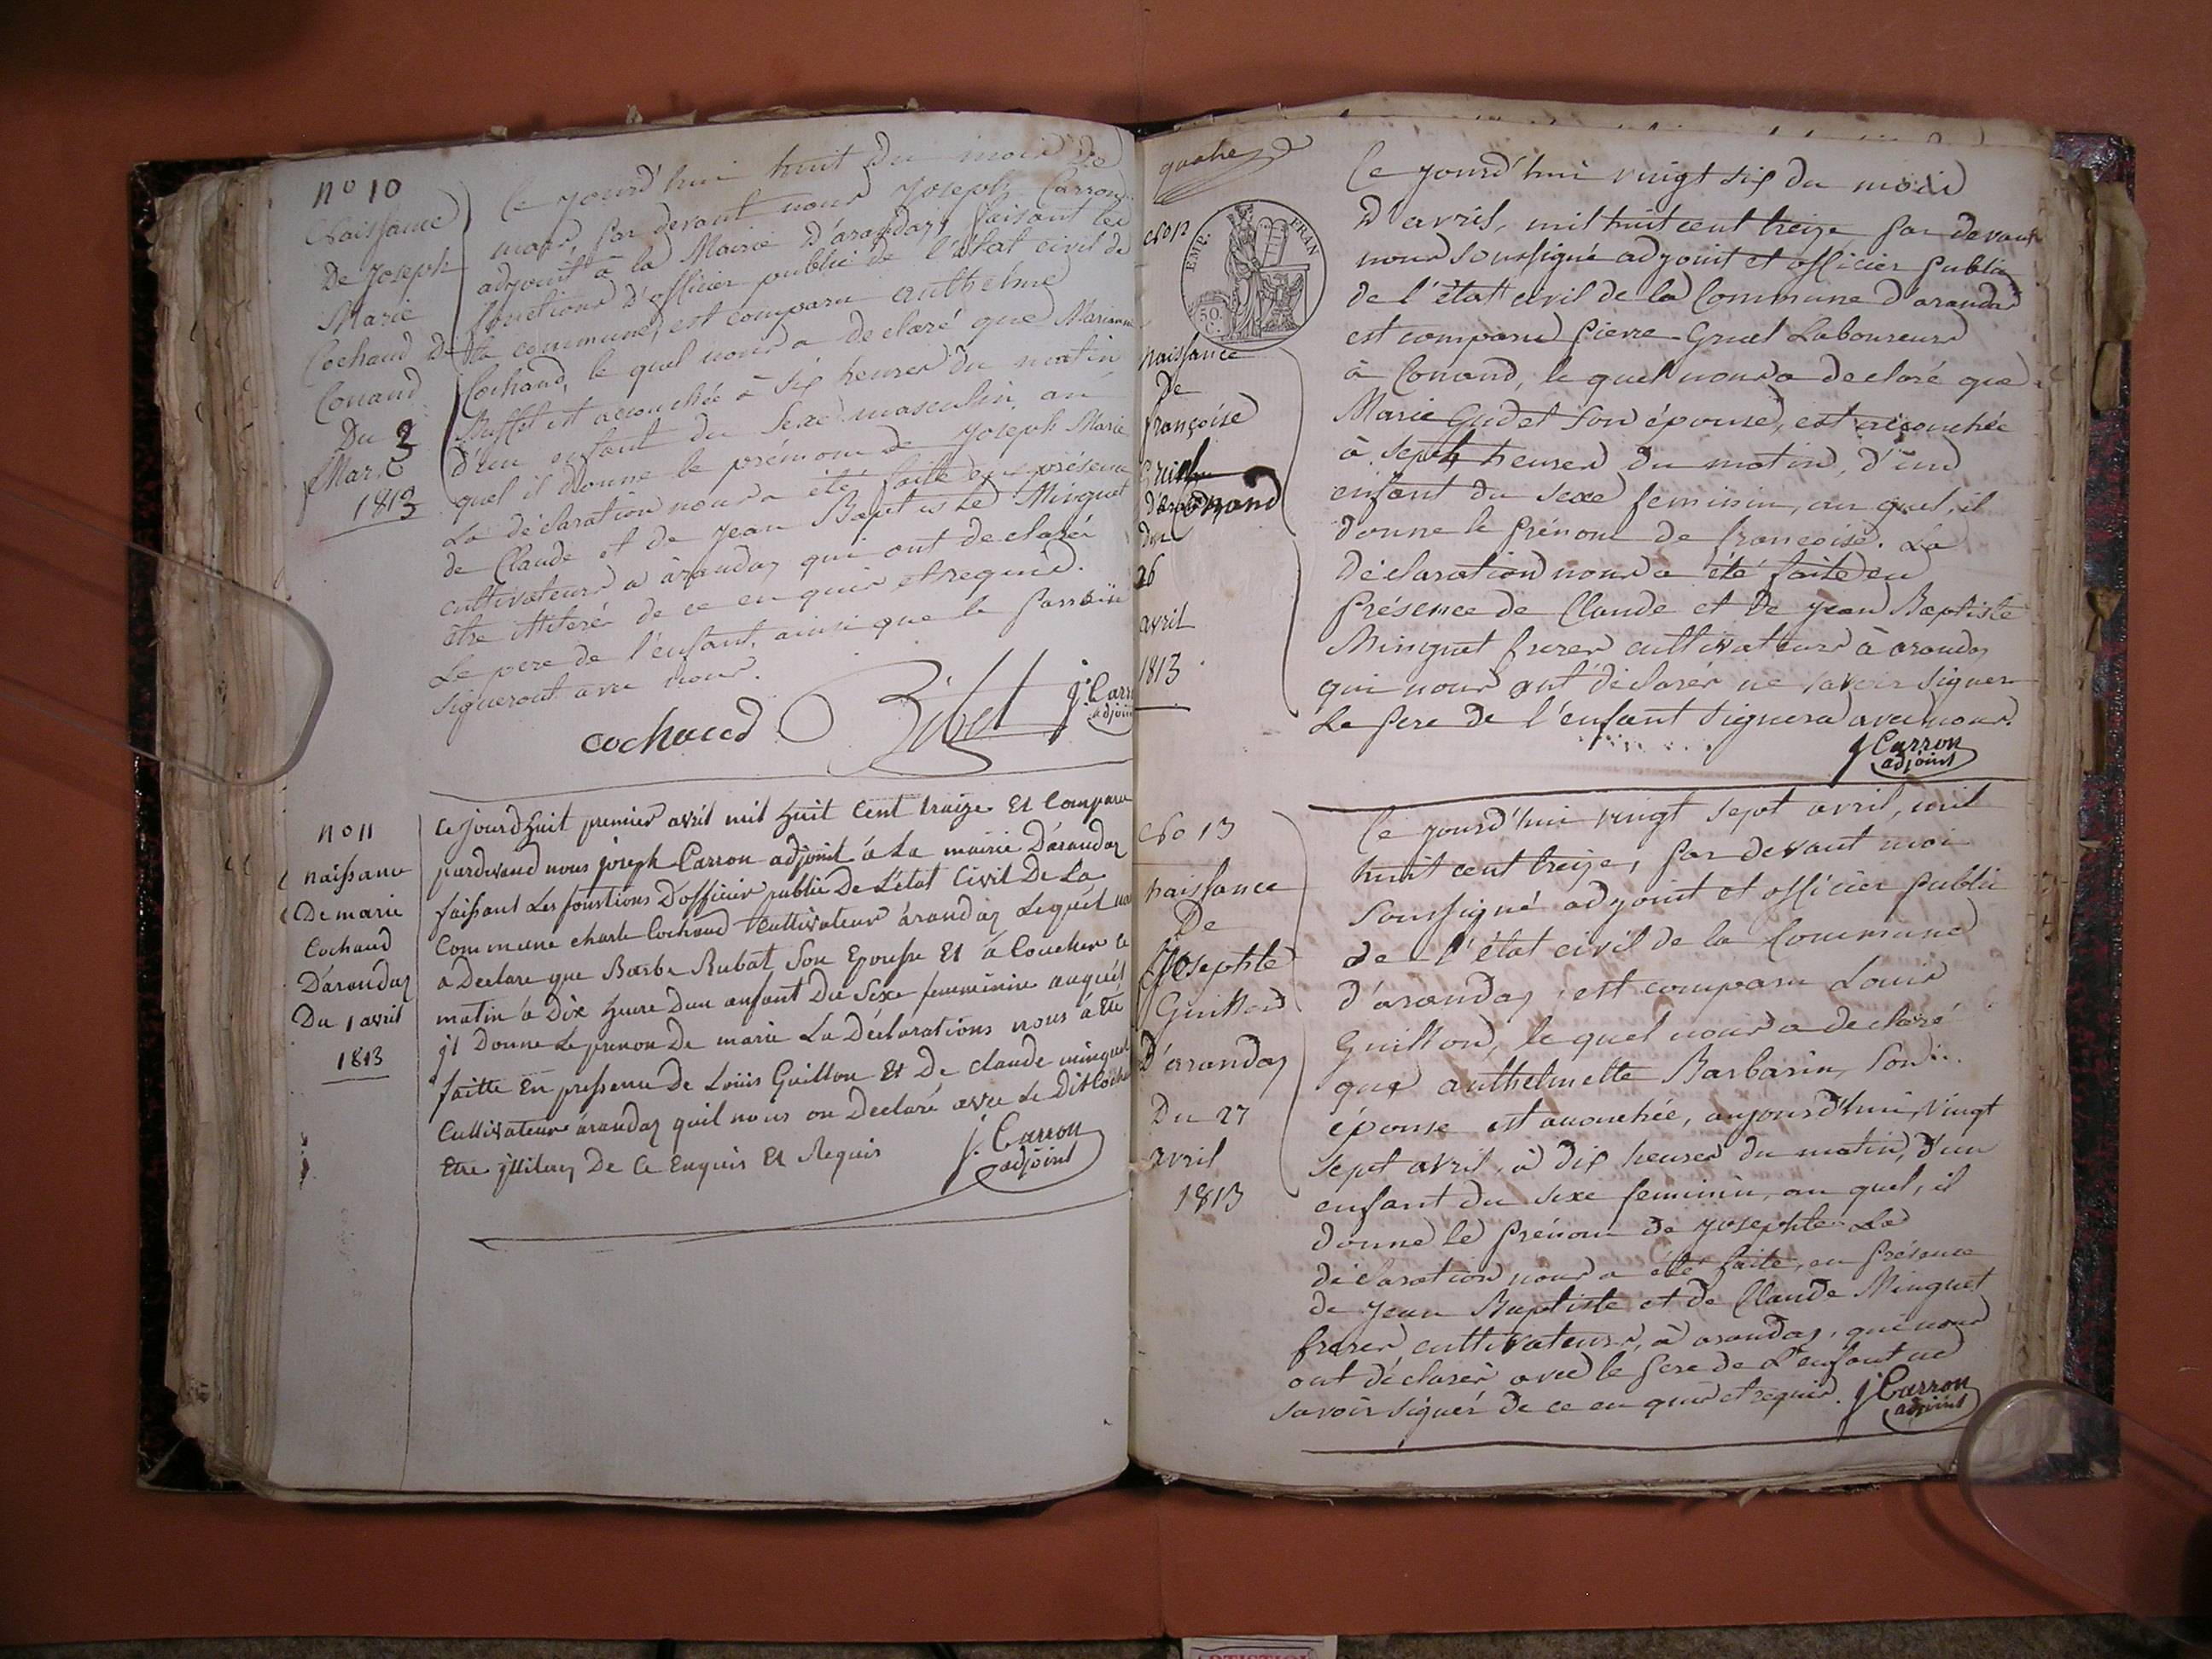 n° 10
Naissance
De Joseph
Marie
Cochaud De
Conand
Du 8
Mars
1813
Ce jourd'hui huit du mois de
mars, par devant nous Joseph Carron
adjoint à la Mairie d'arandaz, faisant les
fonctions d'officier public de l'état civil de
la commune, est comparu anthelme
Cochaud, le quel nous a declaré que Marianne
Buffet est accouchée à six heures du matin
d'un enfant du sexe masculin, au
quel il donne le prénom de Joseph Marie
La déclaration nous a été faite en présence
de Claude et de Jean Baptiste Minguet
cultivateurs a arandaz qui ont declarés
être illiterés de ce enquis et requis.
Le pere de l'enfant, ainsi que le parrain
signeront avec nous.
cochaud
j. Carr
adjoin
n° 11
naissance
De marie
Cochaud
D'arandaz
Du 1 avril
1813
Ce jourdhuit premier avril mil huit Cent traize Et Comparu
pardevand nous joseph Carron adjoint à La mairie D'arandaz
faissant Les fonstions D'officier public De L'état Civil De La
Commune charle Cochaud Cultivateur àrandaz Lequel nous
a Declare que Barbe Rubat Son Epousse Et à Coucher ce
matin à Dix heure Dun anfant Du Sexe femminin auquel
jl Donne Le prenon De marie La Déclarations nous à Ete
faitte En pressence De Loüis Guillon Et De claude minguet
Cultivateur àrandaz quil nous on Declaré avec Le Dit Cochaud
Etre jlliteres De Ce Enquis Et Requis
j. Carron
adjoint
quatre
No 12
EMP. FRAN
50. C.
naissance
De
françoise
Gruel
Conand
du
26
avril
1813
Ce jourd'hui vingt six du mois
d'avril, mil huit cent treize, par devant
nous soussigné adjoint et officier public
de l'état civil de la Commune d'arandas
est comparu Pierre Gruel Laboureur
à Conand, le quel nous a declaré que
Marie Gudet son épouse, est accouchée
à sept heures du matin, d'un
enfant du sexe feminin, au quel, il
donne le Prénom de françoise. La
déclaration nous a été faite en
Présence de Claude et de Jean Baptiste
Minguet freres cultivateurs à arandas
qui nous ont déclarés ne savoir signer
Le Pere de l'enfant signera avec nous.
j Carron
adjoint
No 13
naissance
De
Josephte
Guillon
D'arandas
Du 27
avril
1813
Ce jourd'hui vingt sept avril, mil
huit cent treize, par devant moi
soussigné adjoint et officier Public
de l'état civil de la Commune
d'arandas, est comparu Louis
Guillon, le quel nous a declaré
que anthelmette Barbarin, son
épouse est accouchée, aujourd'hui, vingt
sept avril, à dix heures du matin, d'un
enfant du sexe feminin, au quel, il
donne le Prénom de Josephte. La
déclaration nous a été faite, en Présence
de Jean Baptiste et de Claude Minguet
freres, cultivateurs, à arandas, qui nous
ont déclarés avec le Pere de L'enfant ne
savoir signer de ce enquis et requis.
j Carron
adjoint